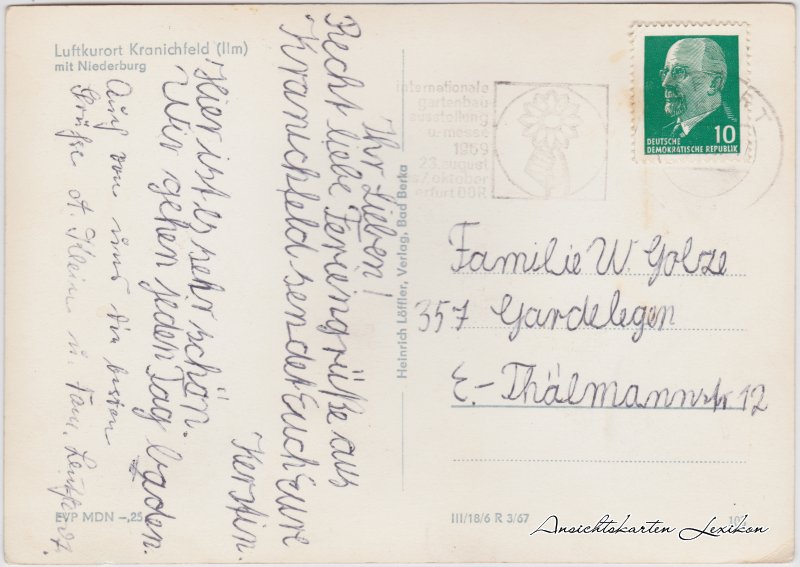 Luftkurort Kranichfeld (Ilm)
mit Niederburg
Ihr Lieben!
Recht liebe Feriengrüße aus
Kranichfeld sendet Euch Eure
Kerstin.
Hier ist es sehr schön.
Wir gehen jeden Tag baden.
Auch von uns die besten
Grüße A. Klein u. Fam.
EVP MDN –,25
Heinrich Löffler, Verlag, Bad Berka
internationale
gartenbau
ausstellung
u. messe
1969
23. august
oktober
erfurt DDR
10
DEUTSCHE
DEMOKRATISCHE REPUBLIK
Familie W. Golze
357 Gardelegen
E.-Thälmannstr. 12
III/18/6 R 3/67
Ansichtskarten Lexikon